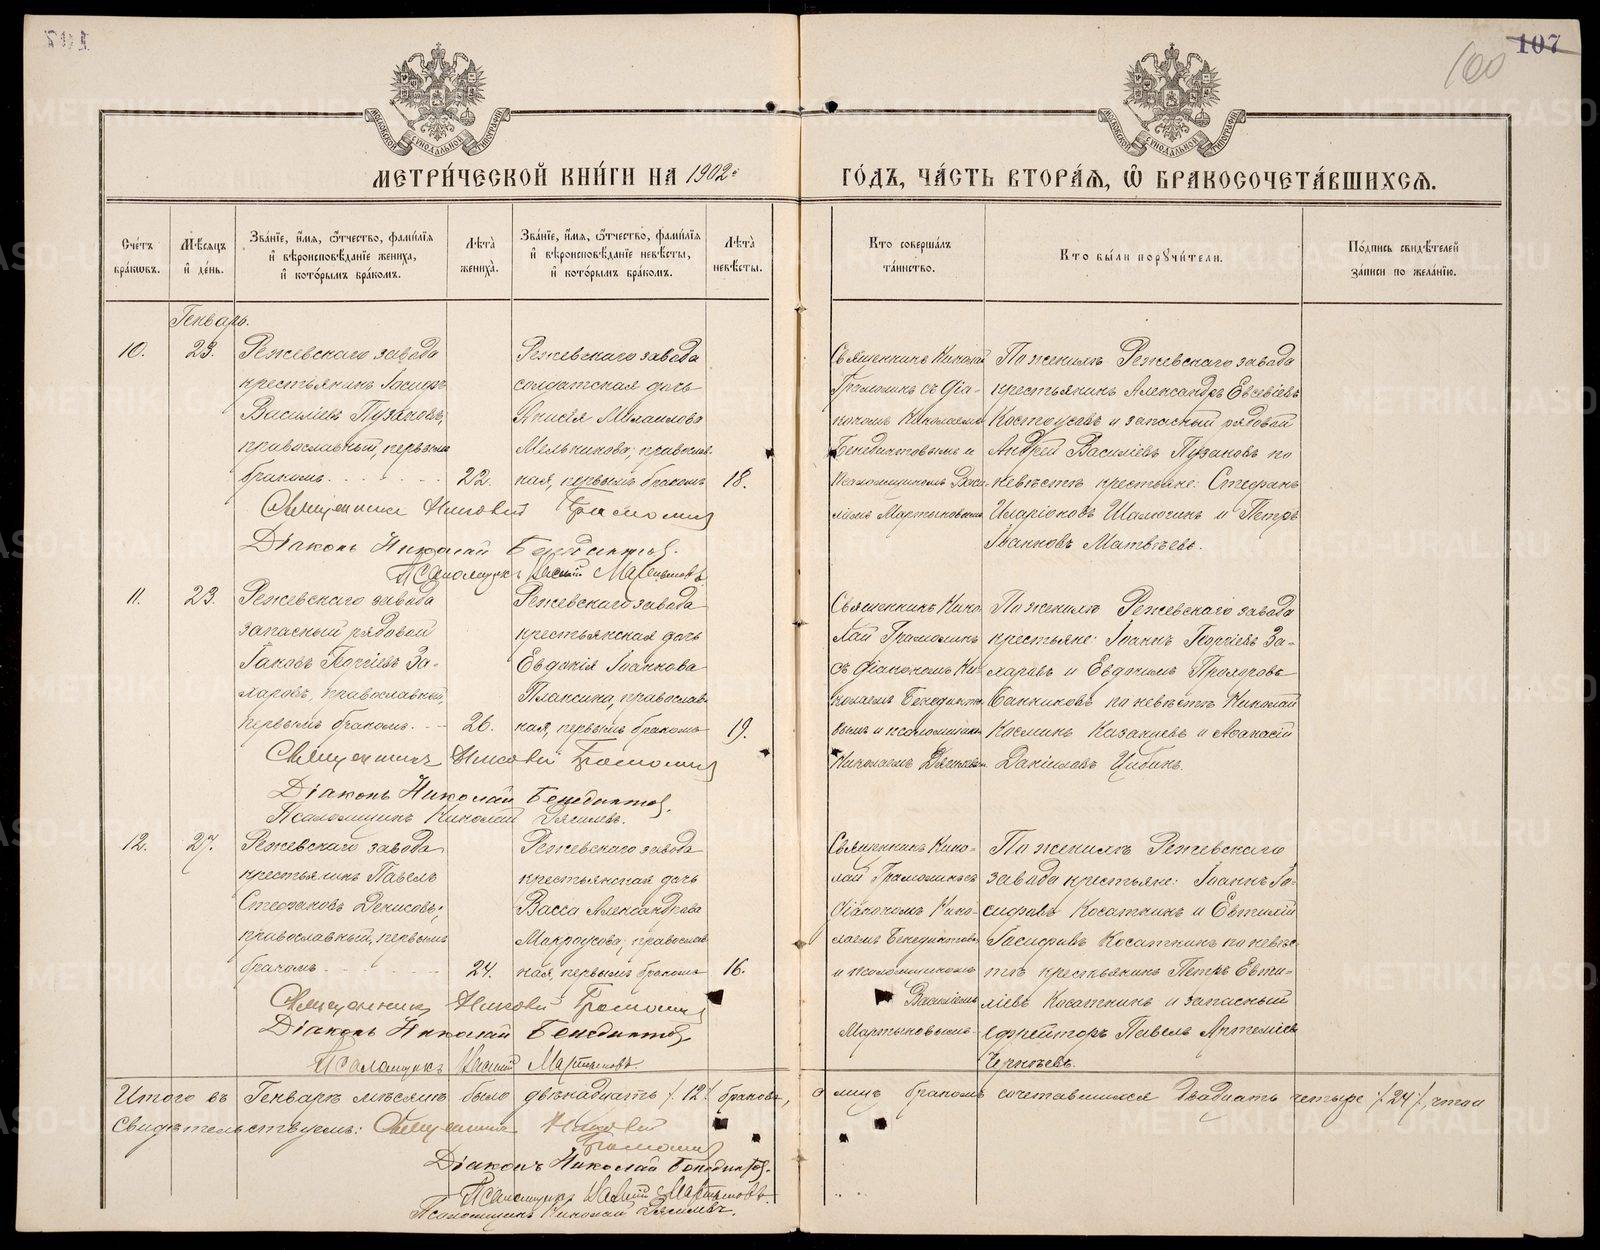 107
100
МЕТРИ́ЧЕСКОЙ КНИ́ГИ НА 1902й
ГО́ДЪ, ЧА́СТЬ ВТОРА́Я, Ѡ БРАКОСОЧЕТА́ВШИХСЯ.
Сче́тъ бра́ковъ.
Мѣсяцъ и де́нь.
Зва́нїе, и́мя, ѻ́тчество, фами́лїя и вѣроисповѣ́данїе жениха̀, и кото́рымъ бра́комъ.
Лѣ́та жениха̀.
Зва́нїе, и́мя, ѻ́тчество, фами́лїя и вѣроисповѣ́данїе невѣ́сты, и кото́рымъ бра́комъ.
Лѣ́та невѣ́сты.
Кто соверша́лъ та́инство.
Кто бы́ли порꙋчи́тели.
По́дпись свидѣ́телей за́писи по жела́нїю.
Генварь.
10.
23.
Режевскаго завода
крестьянинъ Іосифъ
Василіевъ Пузановъ,
православный, первымъ
бракомъ.
22.
Режевскаго завода
солдатская дочь
Анисія Михаилова
Мельникова, православ-
ная, первымъ бракомъ
18.
Священникъ Николай
Грамолинъ съ діа-
кономъ Николаемъ
Бенедиктовымъ и
псаломщикомъ Васи-
ліемъ Мартыновымъ
По женихѣ Режевскаго завода
крестьянинъ Александръ Евсевіевъ
Костоусовъ и запасный рядовой
Андрей Василіевъ Пузановъ по
невѣстѣ крестьяне: Стефанъ
Иларіоновъ Шалюгинъ и Петръ
Іоанновъ Матвѣевъ.
Священникъ Николай Грамолинъ
Діаконъ Николай Бенедиктовъ.
Псаломщикъ Василій Мартыновъ
11.
23.
Режевскаго завода
запасный рядовой
Іаковъ Георгіевъ За-
харовъ, православный,
первымъ бракомъ.
26.
Режевскаго завода
крестьянская дочь
Евдокія Іоаннова
Плаксина, православ-
ная, первымъ бракомъ
19.
Священникъ Нико-
лай Грамолинъ
съ діакономъ Ни-
колаемъ Бенедикто-
вымъ и псаломщикомъ
Николаемъ
По женихѣ Режевскаго завода
крестьяне: Іоаннъ Георгіевъ За-
харовъ и Евдокимъ Прохоровъ
Банниковъ по невѣстѣ Николай
Косминъ Казанцевъ и Афанасій
Даніиловъ Цибинъ.
Священникъ Николай Грамолинъ
Діаконъ Николай Бенедиктовъ.
Псаломщикъ Николай
12.
27.
Режевскаго завода
крестьянинъ Павелъ
Стефановъ Денисовъ,
православный, первымъ
бракомъ
24.
Режевскаго завода
крестьянская дочь
Васса Александрова
Макроусова, православ-
ная, первымъ бракомъ
16.
Священникъ Нико-
лай Грамолинъ съ
діакономъ Нико-
лаемъ Бенедиктовы-
и псаломщикомъ
Василіемъ
Мартыновымъ
По женихѣ Режевскаго
завода крестьяне: Іоаннъ Іо-
сифовъ Косаткинъ и Евтихій
Іосифовъ Косаткинъ по невѣс-
тѣ крестьянинъ Петръ Евти-
хіевъ Косаткинъ и запасный
ефрейторъ Павелъ Артеміевъ
Священникъ Николай Грамолинъ
Діаконъ Николай Бенедиктовъ
Псаломщикъ Василій Мартыновъ.
Итого въ Генварѣ мѣсяцѣ было двѣнадцать /12/ браковъ, а лицъ бракомъ сочетавшихся двадцать четыре /24/, что и
свидѣтельствуемъ: Священникъ Николай
Грамолинъ
Діаконъ Николай Бенедиктовъ.
Псаломщикъ Василій Мартыновъ.
Псаломщикъ Николай
METRIKI.GASO-URAL.RU